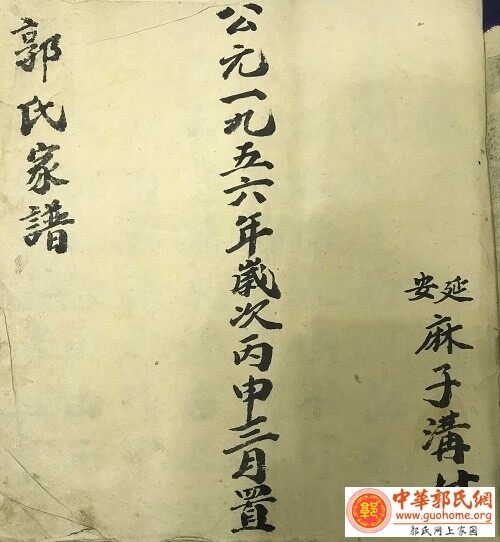 延安麻子溝
公元一九五六年歲次丙申三月置
郭氏家譜
郭
中華郭氏網
www.guohome.org
郭氏网上家园